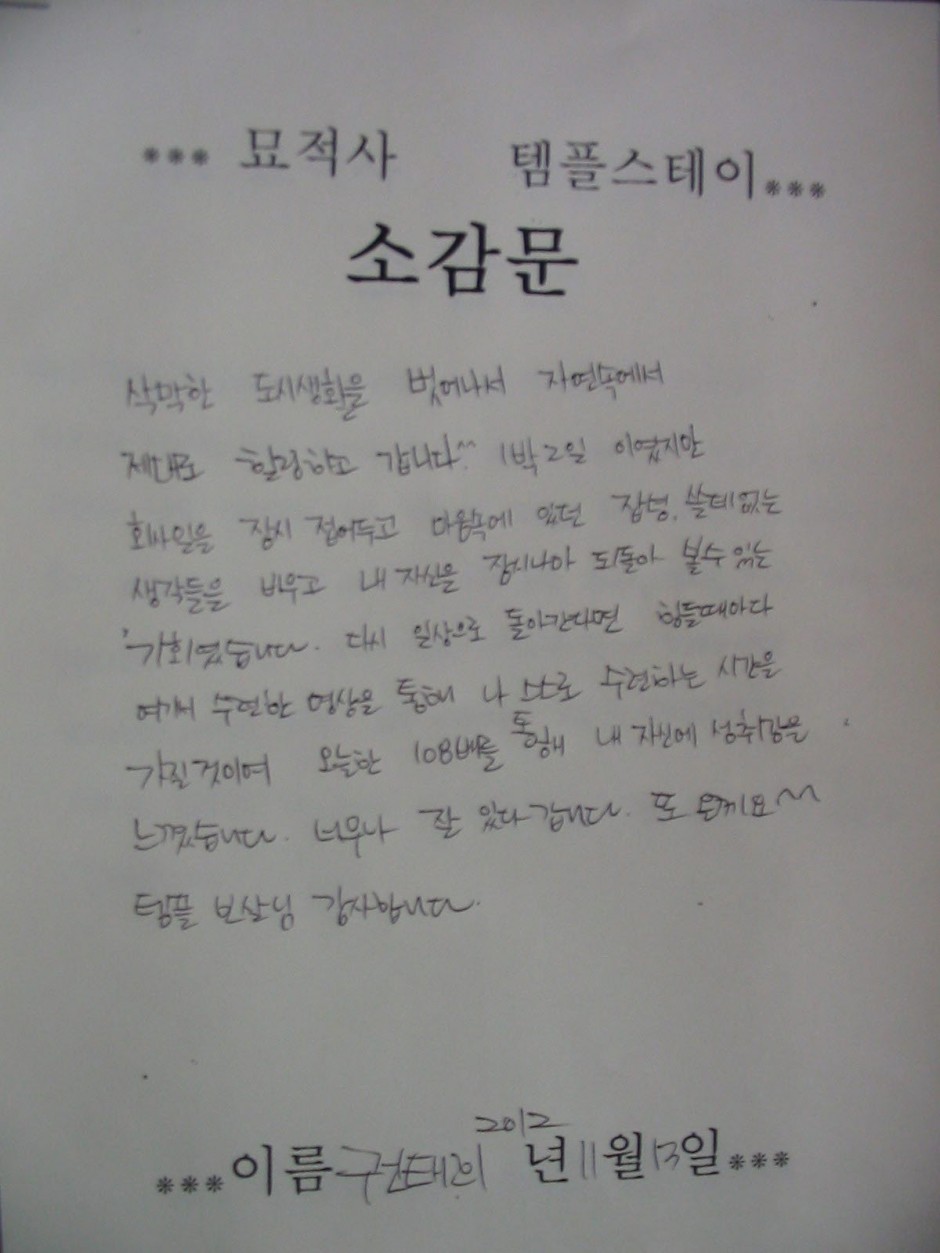 *** 묘적사 템플스테이 ***
소감문
삭막한 도시생활을 벗어나서 자연속에서
제대로 힐링하고 갑니다.^^ 1박2일 이였지만
회사일을 잠시 접어두고 마음속에 있던 잡념, 쓸데없는
생각들을 비우고 내 자신을 잠시나마 되돌아 볼수 있는
기회였습니다. 다시 일상으로 돌아간다면 힘들때마다
여기서 수련한 명상을 통해 나 스스로 수련하는 시간을
가질것이며 오늘한 108배를 통해 내 자신에 성취감을
느꼈습니다. 너무나 잘 있다 갑니다. 또 올께요^^
템플 보살님 감사합니다.
*** 이름 2012 년 11 월 13 일 ***